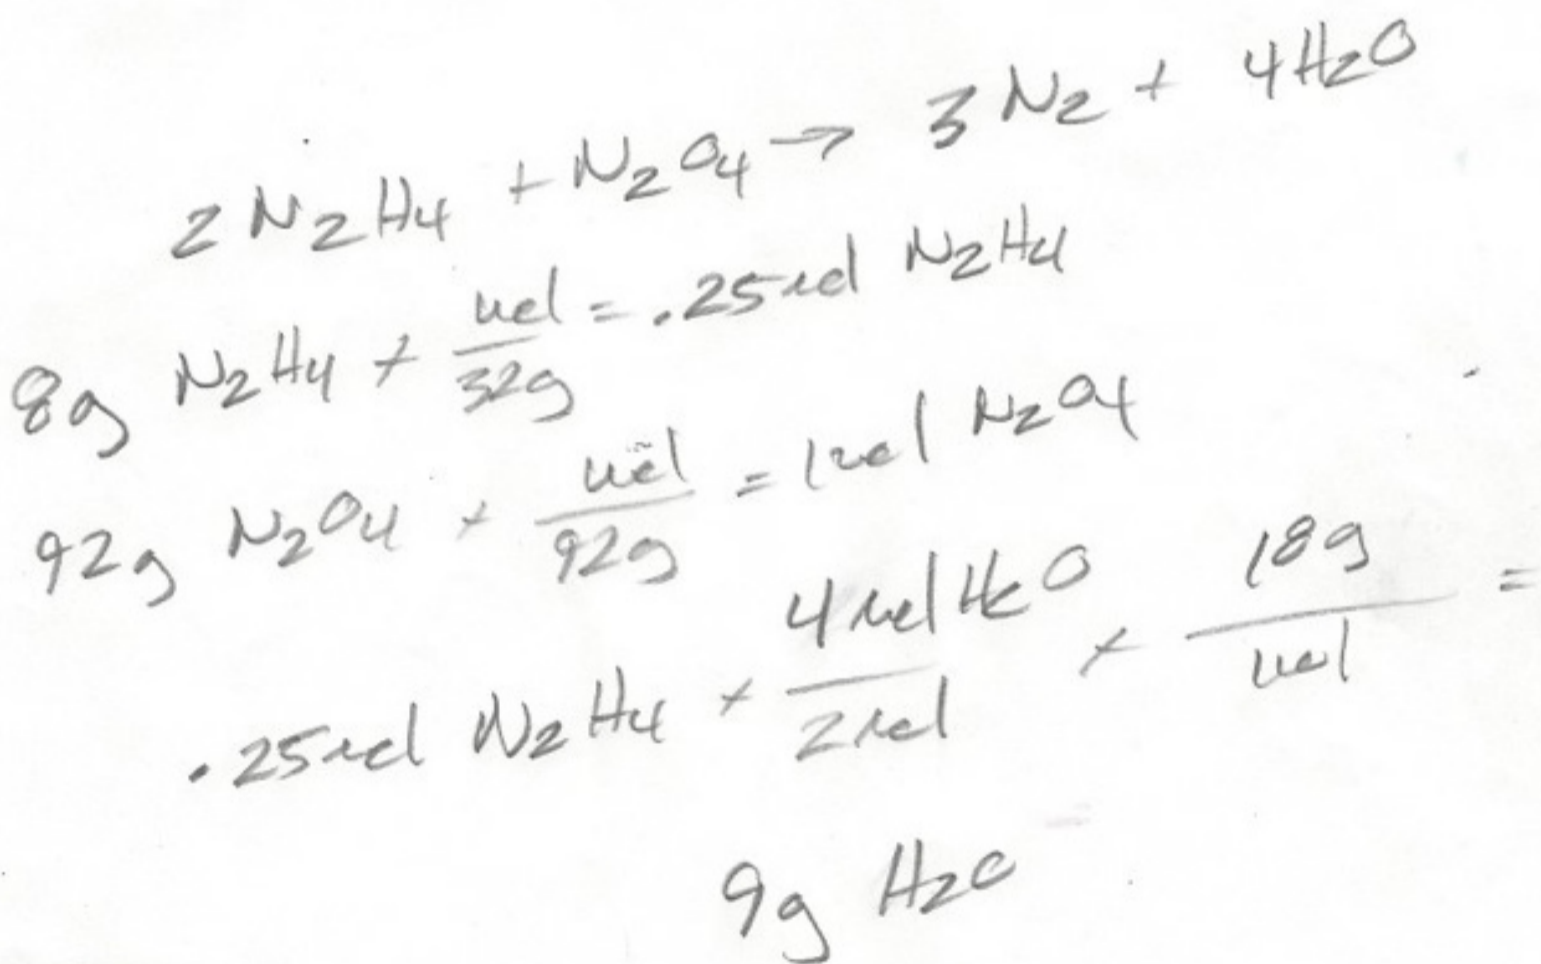 2 N2H4 + N2O4 → 3 N2 + 4H2O
8g N2H4 + mol/32g = .25 mol N2H4
92g N2O4 + mol/92g = 1 mol N2O4
.25 mol N2H4 + 4 mol H2O/2 mol + 18g/mol =
9g H2O